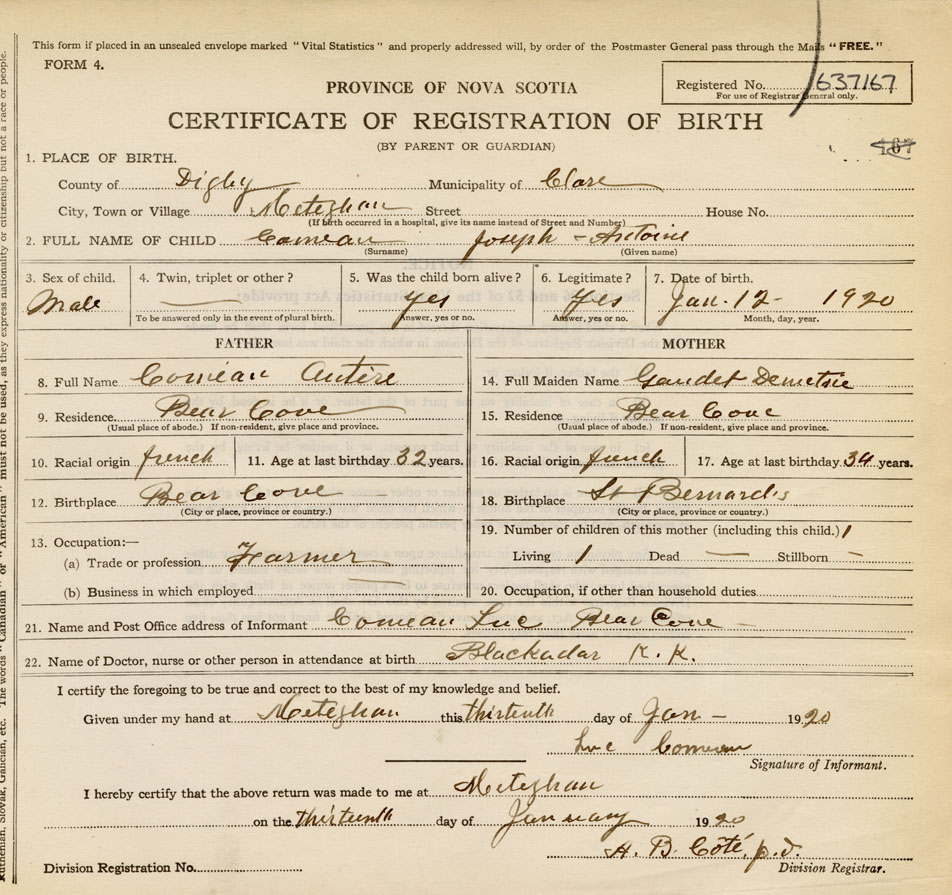 This form if placed in an unsealed envelope marked "Vital Statistics" and properly addressed will, by order of the Postmaster General pass through the Mails "FREE."
FORM 4.
Registered No. 637167
For use of Registrar General only.
PROVINCE OF NOVA SCOTIA
CERTIFICATE OF REGISTRATION OF BIRTH
(BY PARENT OR GUARDIAN)
167
1. PLACE OF BIRTH.
County of Digby Municipality of Clare
City, Town or Village Meteghan Street House No.
(If birth occurred in a hospital, give its name instead of Street and Number)
2. FULL NAME OF CHILD Comeau Joseph - Antoine
(Surname) (Given name)
3. Sex of child. 4. Twin, triplet or other? 5. Was the child born alive? 6. Legitimate? 7. Date of birth.
Male — yes Yes Jan. 12 - 1920
To be answered only in the event of plural birth. Answer, yes or no. Answer, yes or no. Month, day, year.
FATHER MOTHER
8. Full Name Comeau 14. Full Maiden Name Gaudet
9. Residence. Bear Cove 15. Residence Bear Cove
(Usual place of abode.) If non-resident, give place and province. (Usual place of abode.) If non-resident, give place and province.
10. Racial origin french 11. Age at last birthday 32 years. 16. Racial origin french 17. Age at last birthday. 34 years.
12. Birthplace Bear Cove 18. Birthplace St Bernard's
(City or place, province or country.) (City or place, province or country.)
19. Number of children of this mother (including this child.) 1
13. Occupation:—
(a) Trade or profession Farmer Living 1 Dead — Stillborn -
(b) Business in which employed 20. Occupation, if other than household duties
21. Name and Post Office address of Informant Comeau Luc Bear Cove -
22. Name of Doctor, nurse or other person in attendance at birth Blackadar K. K.
I certify the foregoing to be true and correct to the best of my knowledge and belief.
Given under my hand at Meteghan this thirteenth day of Jan - 1920
Luc Comeau
Signature of Informant.
I hereby certify that the above return was made to me at Meteghan
on the thirteenth day of January 1920
A. B. Côté, p.d.
Division Registration No. Division Registrar.
Ruthenian, Slovak, Galician, etc. The words "Canadian" or "American" must not be used, as they express nationality or citizenship but not a race or people.